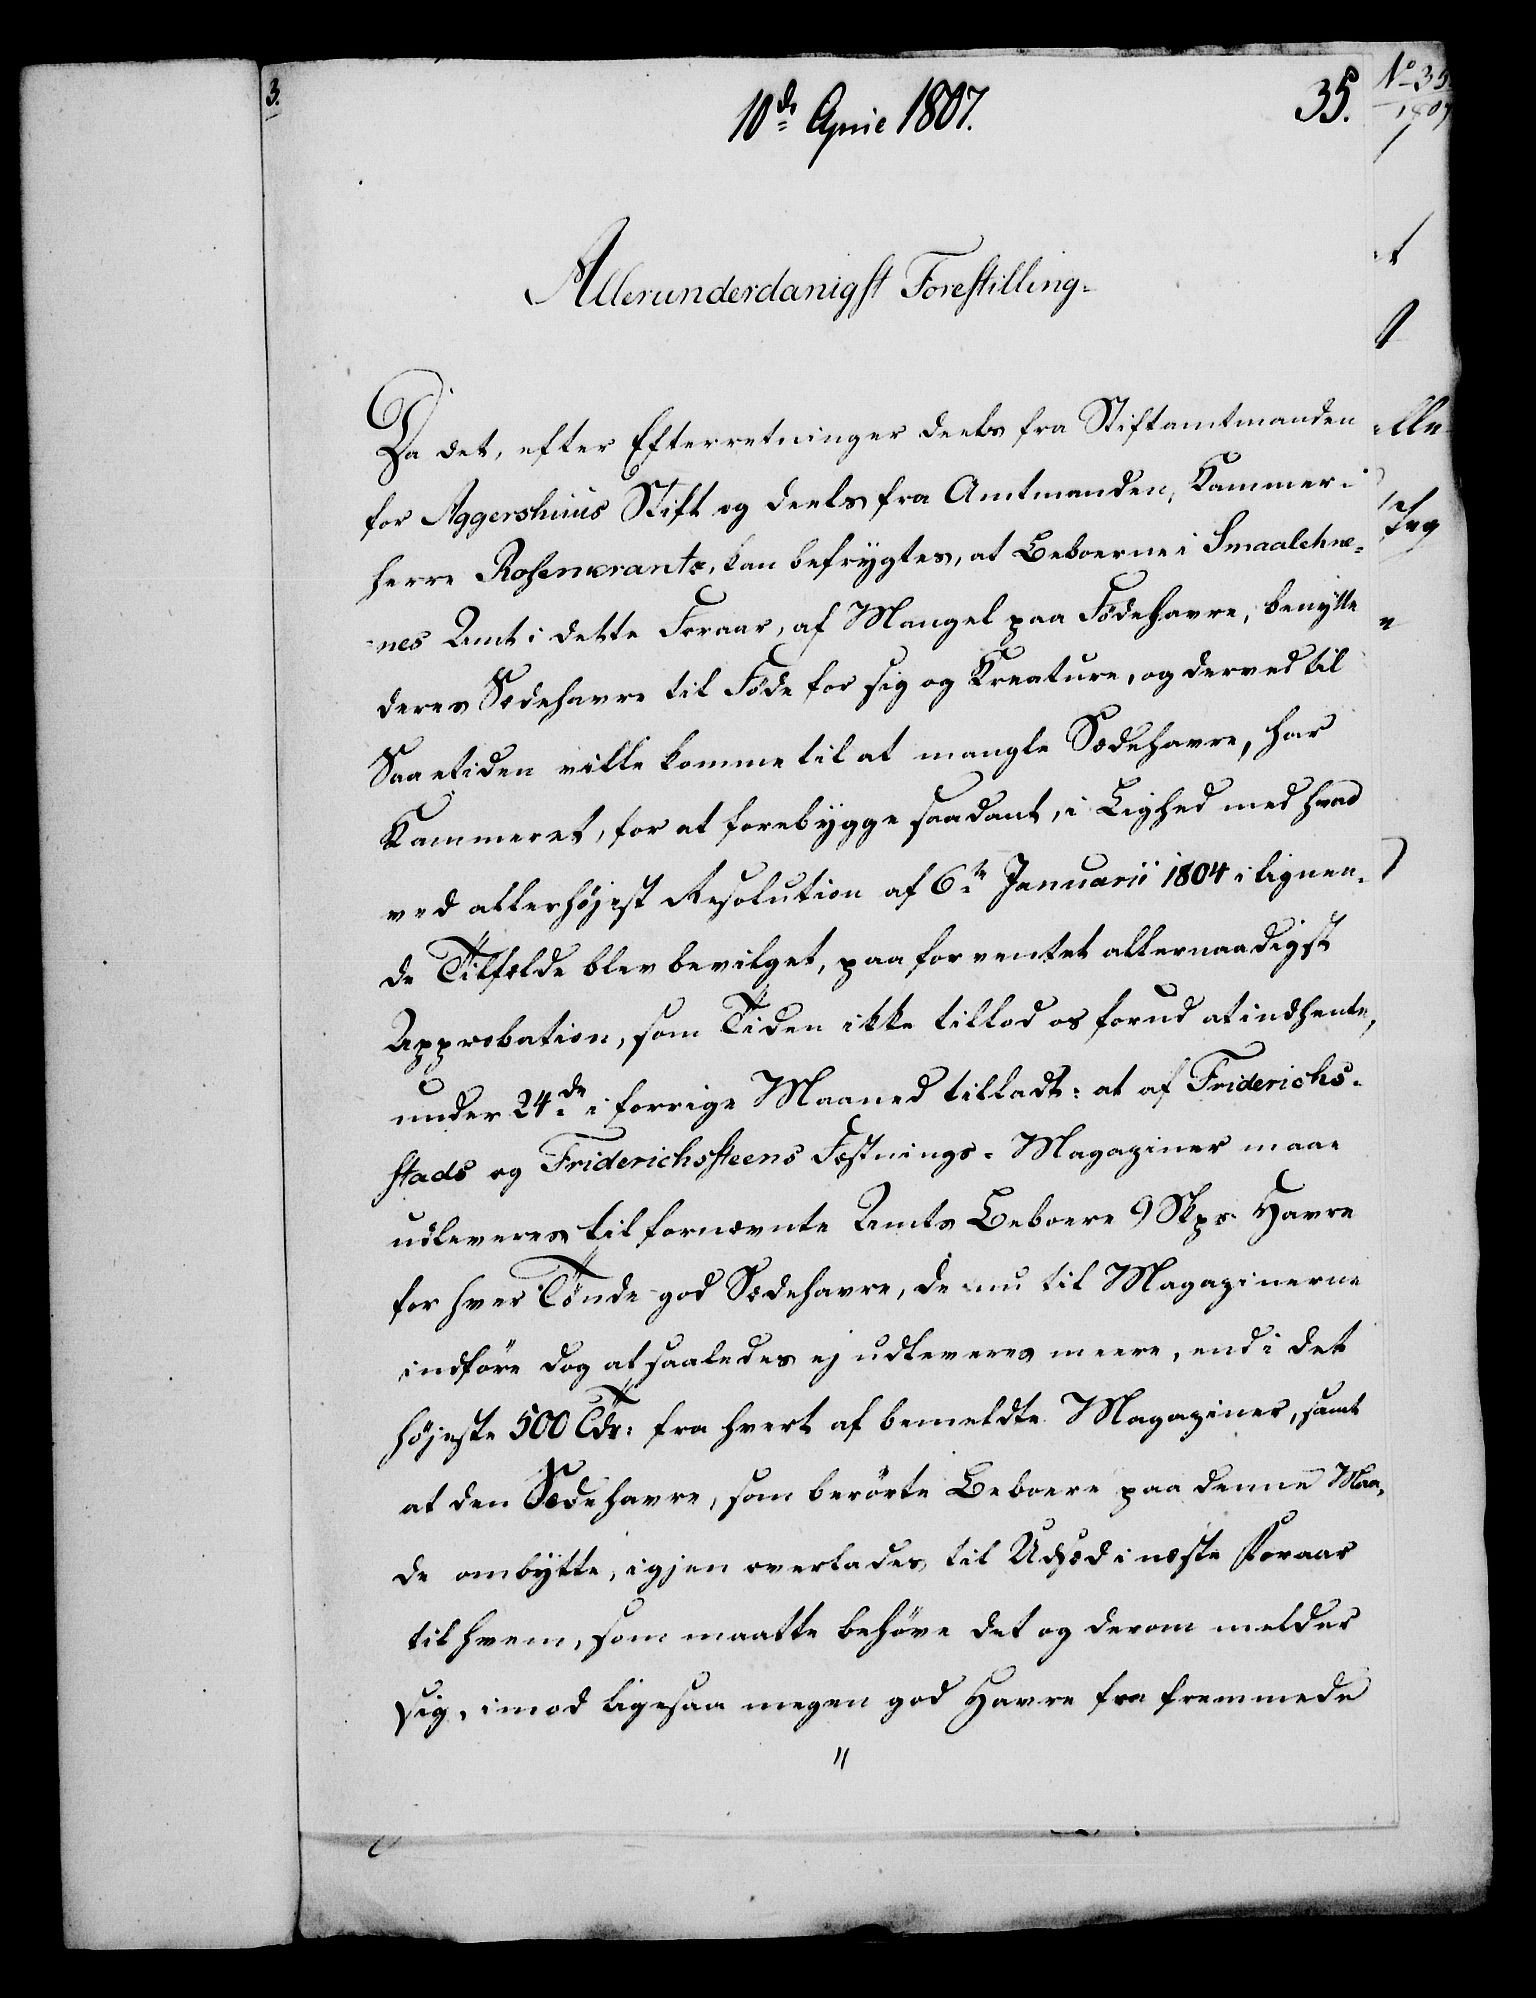 3.
10de April 1807.
35.
No 35
1807
Allerunderdanigst Forestilling.
Da det, efter Efterretninger deels fra Stiftamtmanden
for Aggershuus Stift og deels fra Amtmanden, Kammer-
herre Rosencrantz, kan befrygtes, at Beboerne i Smaalehne-
nes Amt i dette Foraar, af Mangel paa Födehavre, benytte
deres Sædehavre til Föde for sig og Kreature, og derved til
Saaetiden ville komme til at mangle Sædehavre, har
Kammeret, for at forebygge saadant, i Lighed med hvad
ved allerhöjest Resolution af 6te Januarii 1804 i lignen-
de Tilfælde blev bevilget, paa forventet allernaadigst
Approbation, som Tiden ikke tillod os forud at indhente,
under 24de i forrige Maaned tilladt: at af Friderichs-
stads og Friderichssteens Fæstnings-Magaziner maae
udleveres til fornævnte Amts Beboere 9 Skpr. Havre
for hver Tönde god Sædehavre, de nu til Magazinerne
indföre dog at saaledes ej udleveres meere, end i det
höjeste 500 Tdr: fra hvert af bemeldte Magaziner, samt
at den Sædehavre, som berörte Beboere paa denne Maa-
de ombytte, igjen overlades til Udsæd i næste Foraar
til hvem, som maatte behöve det og derom melder
sig, imod ligesaa megen god Havre fra fremmede
"